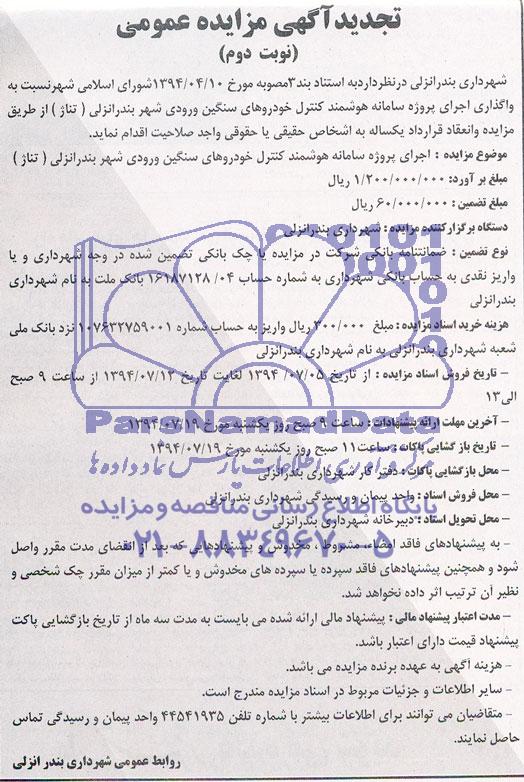 تجدیدآگهی مزایده عمومی
(نوبت دوم)
شهرداری بندرانزلی درنظرداردبه استناد بند۳مصوبه مورخ ۱۳۹۴/۰۴/۱۰شورای اسلامی شهرنسبت به
واگذاری اجرای پروژه سامانه هوشمند کنترل خودروهای سنگین ورودی شهر بندرانزلی ( تناژ ) از طریق
مزایده وانعقاد قرارداد یکساله به اشخاص حقیقی یا حقوقی واجد صلاحیت اقدام نماید.
موضوع مزایده : اجرای پروژه سامانه هوشمند کنترل خودروهای سنگین ورودی شهر بندرانزلی ( تناژ )
مبلغ بر آورد: ۱/۲۰۰/۰۰۰/۰۰۰ ریال
مبلغ تضمین : ۶۰/۰۰۰/۰۰۰ ریال
دستگاه برگزارکننده مزایده : شهرداری بندرانزلی
نوع تضمین : ضمانتنامه بانکی شرکت در مزایده یا چک بانکی تضمین شده در وجه شهرداری و یا
واریز نقدی به حساب بانکی شهرداری به شماره حساب ۰۴/ ۱۶۱۸۷۱۲۸ بانک ملت به نام شهرداری
بندرانزلی
هزینه خرید اسناد مزایده : مبلغ ۳۰۰/۰۰۰ ریال واریز به حساب شماره ۱۰۷۶۳۲۷۵۹۰۰۱ نزد بانک ملی
شعبه شهرداری بندرانزلی به نام شهرداری بندرانزلی
– تاریخ فروش اسناد مزایده : از تاریخ ۰۵/ ۰۷/ ۱۳۹۴ لغایت تاریخ ۱۳۹۴/۰۷/۱۲ از ساعت ۹ صبح
الی۱۳
– آخرین مهلت ارائه پیشنهادات : ساعت ۹ صبح روز یکشنبه مورخ ۱۳۹۴/۰۷/۱۹
– تاریخ باز گشایی پاکات : ساعت۱۱ صبح روز یکشنبه مورخ ۱۳۹۴/۰۷/۱۹
– محل بازگشایی پاکات : دفتر کار شهرداری بندرانزلی
– محل فروش اسناد : واحد پیمان و رسیدگی شهرداری بندرانزلی
– محل تحویل اسناد : دبیرخانه شهرداری بندرانزلی
– به پیشنهادهای فاقد امضاء، مشروط ، مخدوش و پیشنهادهایی که بعد از انقضای مدت مقرر واصل
شود و همچنین پیشنهادهای فاقد سپرده یا سپرده های مخدوش و یا کمتر از میزان مقرر چک شخصی و
نظیر آن ترتیب اثر داده نخواهد شد.
– مدت اعتبار پیشنهاد مالی : پیشنهاد مالی ارائه شده می بایست به مدت سه ماه از تاریخ بازگشایی پاکت
پیشنهاد قیمت دارای اعتبار باشد.
– هزینه آگهی به عهده برنده مزایده می باشد.
– سایر اطلاعات و جزئیات مربوط در اسناد مزایده مندرج است.
– متقاضیان می توانند برای اطلاعات بیشتر با شماره تلفن ۴۴۵۴۱۹۳۵ واحد پیمان و رسیدگی تماس
حاصل نمایند.
روابط عمومی شهرداری بندر انزلی
ParsNamadData
پایگاه اطلاع رسانی مناقصه و مزایده
۰۲۱-۸۸۳۴۹۶۷۰-۵